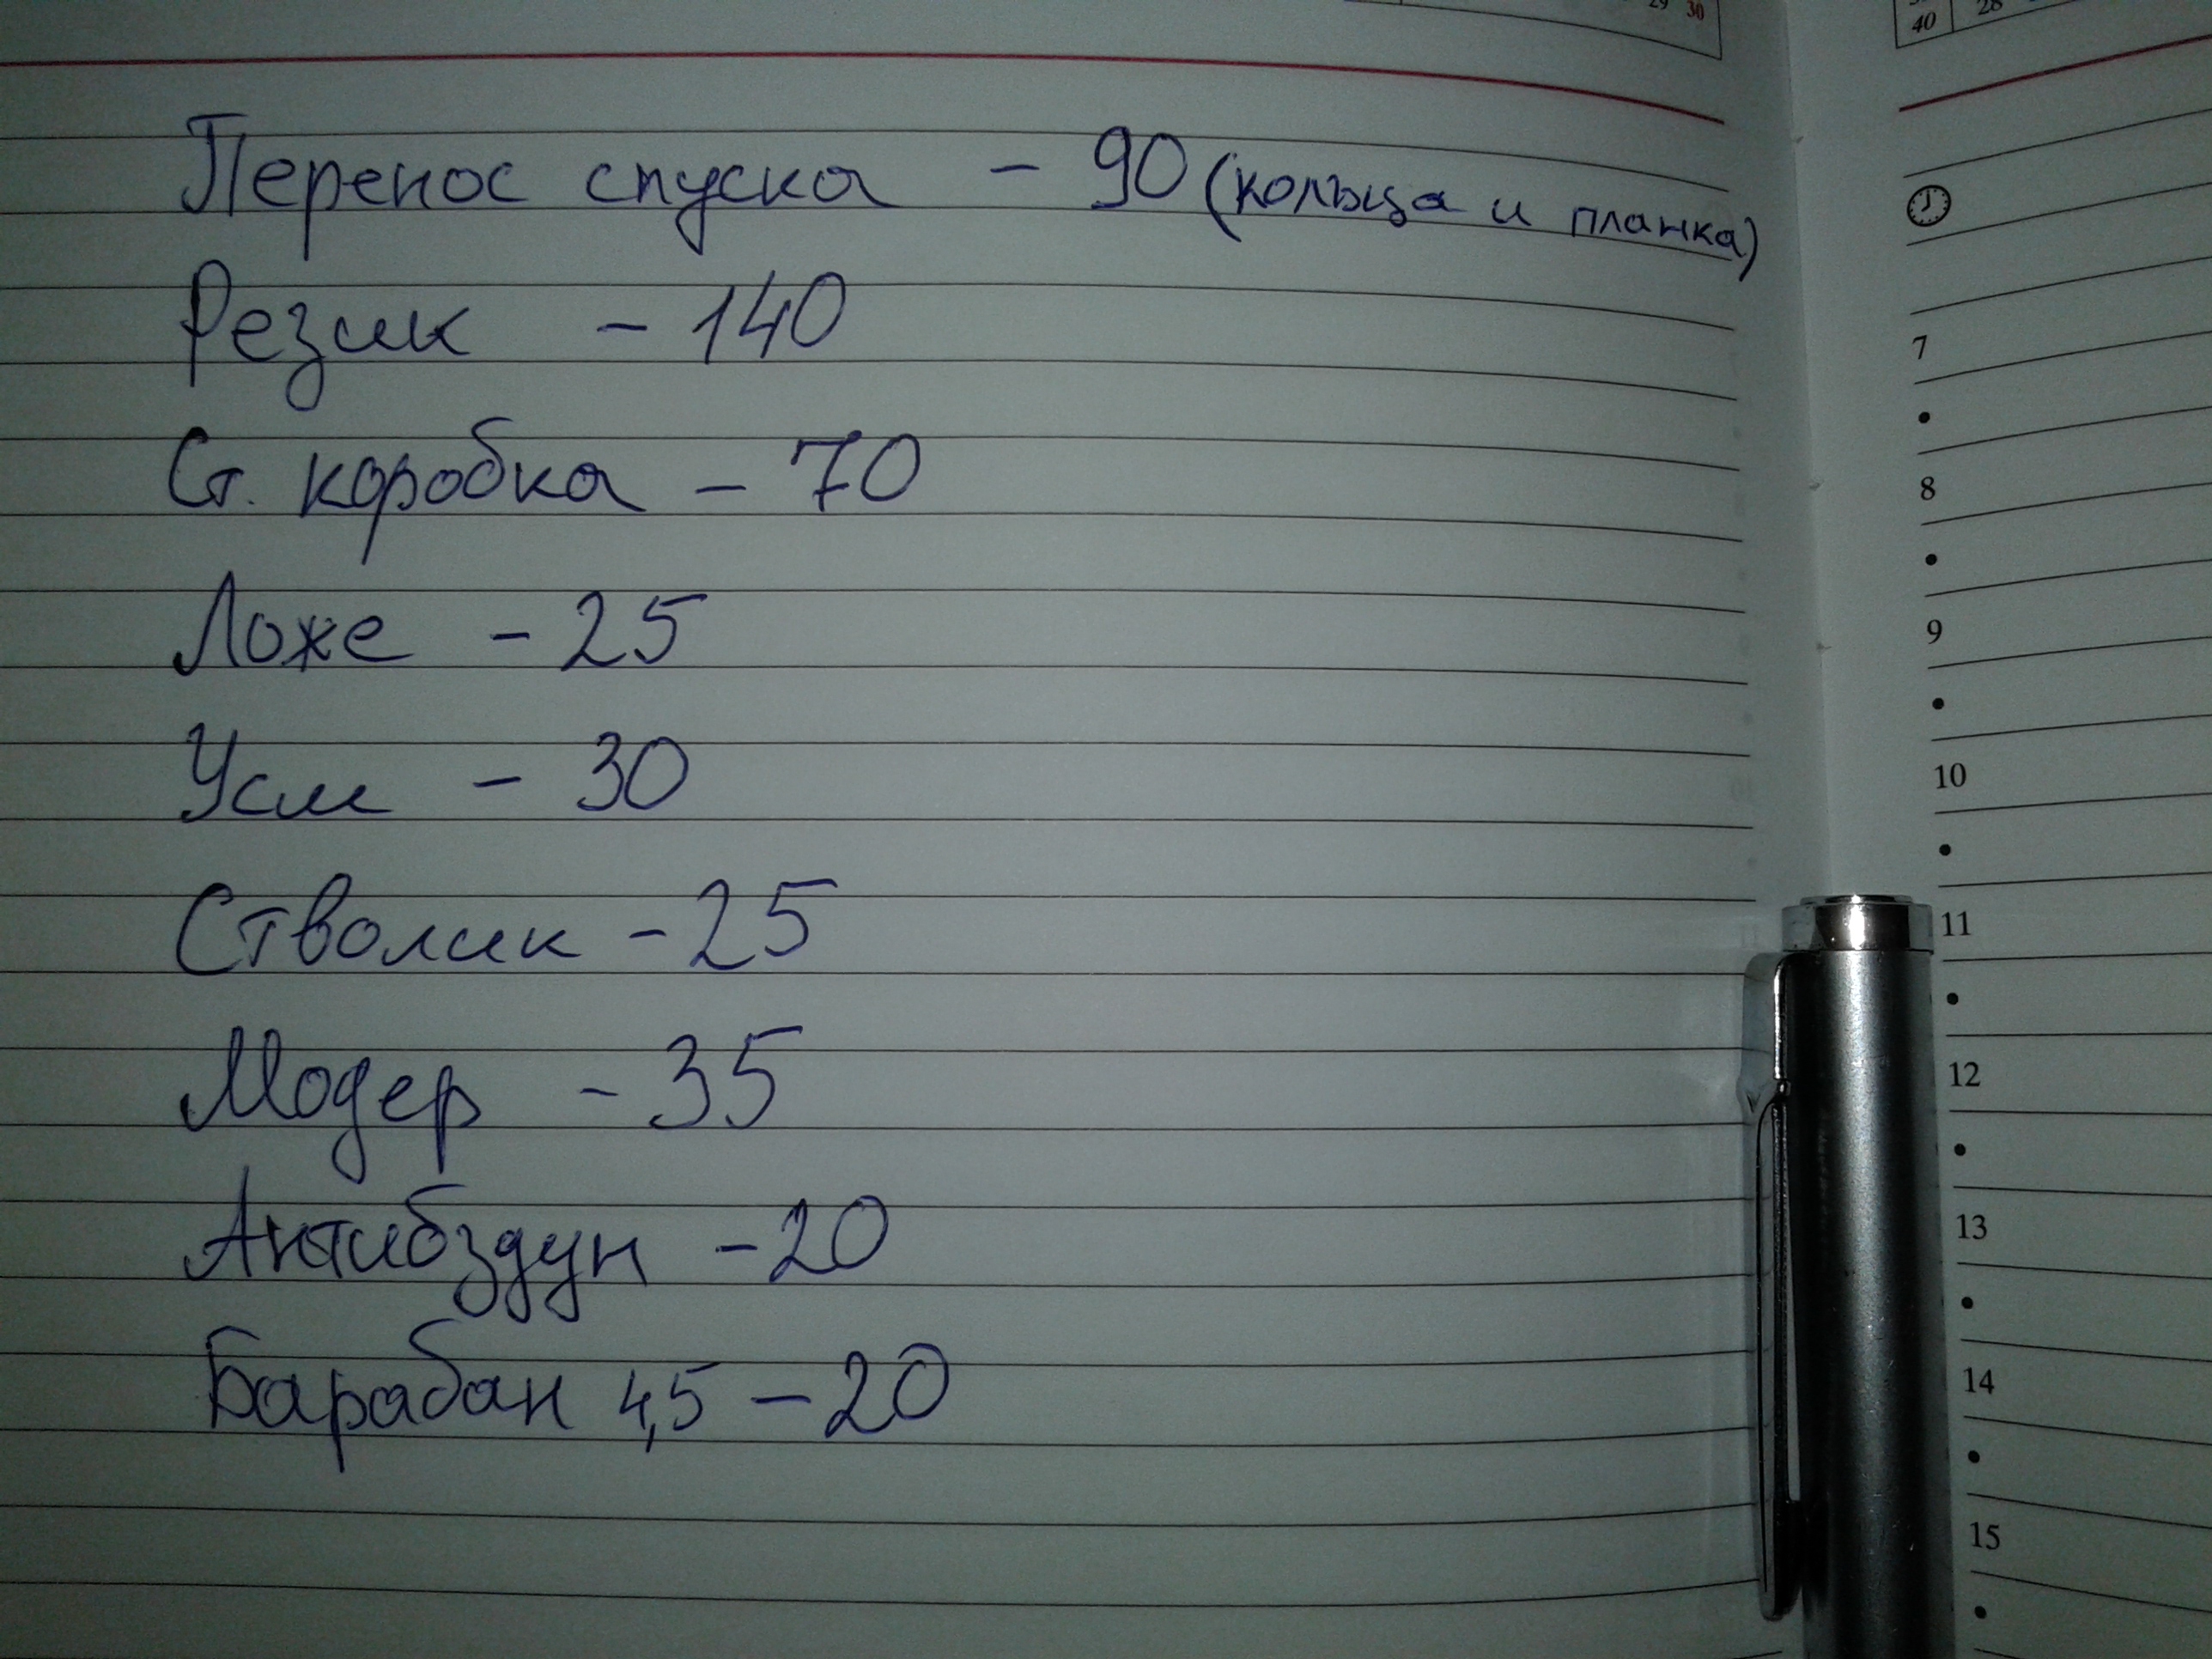 29 30
40 28
Перенос спуска - 90 (кольца и планка)
Резик - 140
Ст. коробка - 70
Ложе - 25
Усм - 30
Стволик - 25
Модер - 35
Антибздун - 20
Барабан 4,5 - 20
7
8
9
10
11
12
13
14
15